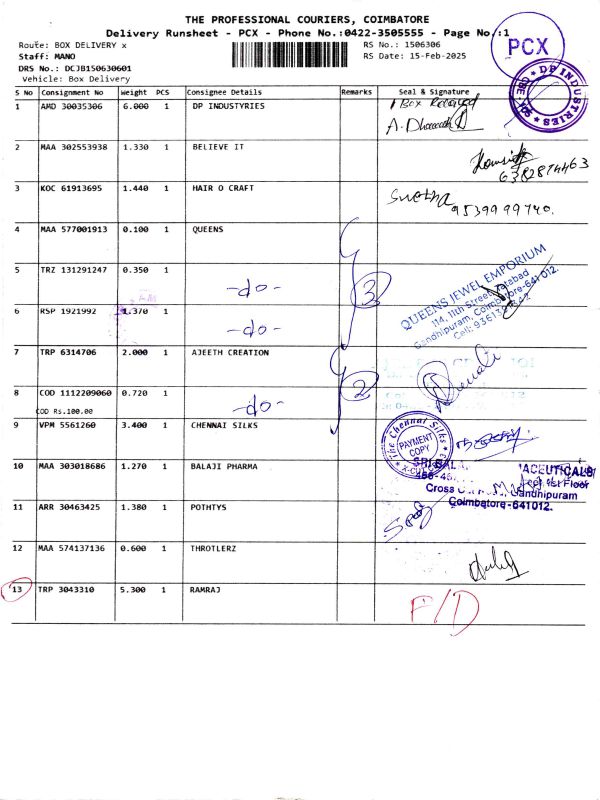 THE PROFESSIONAL COURIERS, COIMBATORE
Delivery Runsheet - PCX - Phone No.:0422-3505555 - Page No.:1
Route: BOX DELIVERY x
RS No.: 1506306
Staff: MANO
RS Date: 15-Feb-2025
DRS No.: DCJB150630601
Vehicle: Box Delivery
PCX
DP INDUSTRIES
S No Consignment No Weight PCS Consignee Details Remarks Seal & Signature
1 AMD 30035306 6.000 1 DP INDUSTYRIES
1 Box Received
2 MAA 302553938 1.330 1 BELIEVE IT
6382874463
3 KOC 61913695 1.440 1 HAIR O CRAFT
Swetha
9539999740.
4 MAA 577001913 0.100 1 QUEENS
5 TRZ 131291247 0.350 1 -do-
3
QUEENS JEWEL EMPORIUM
114, 11th Street,
Gandhipuram, Coimbatore-641 012.
6 RSP 1921992 1.370 1 -do-
7 TRP 6314706 2.000 1 AJEETH CREATION
8 COD 1112209060 0.720 1 -do-
2
COD Rs.100.00
9 VPM 5561260 3.400 1 CHENNAI SILKS
The Chennai Silks
PAYMENT
COPY
10 MAA 303018686 1.270 1 BALAJI PHARMA
Gandhipuram
Coimbatore-641012.
11 ARR 30463425 1.380 1 POTHTYS
12 MAA 574137136 0.600 1 THROTLERZ
13 TRP 3043310 5.300 1 RAMRAJ
F/D